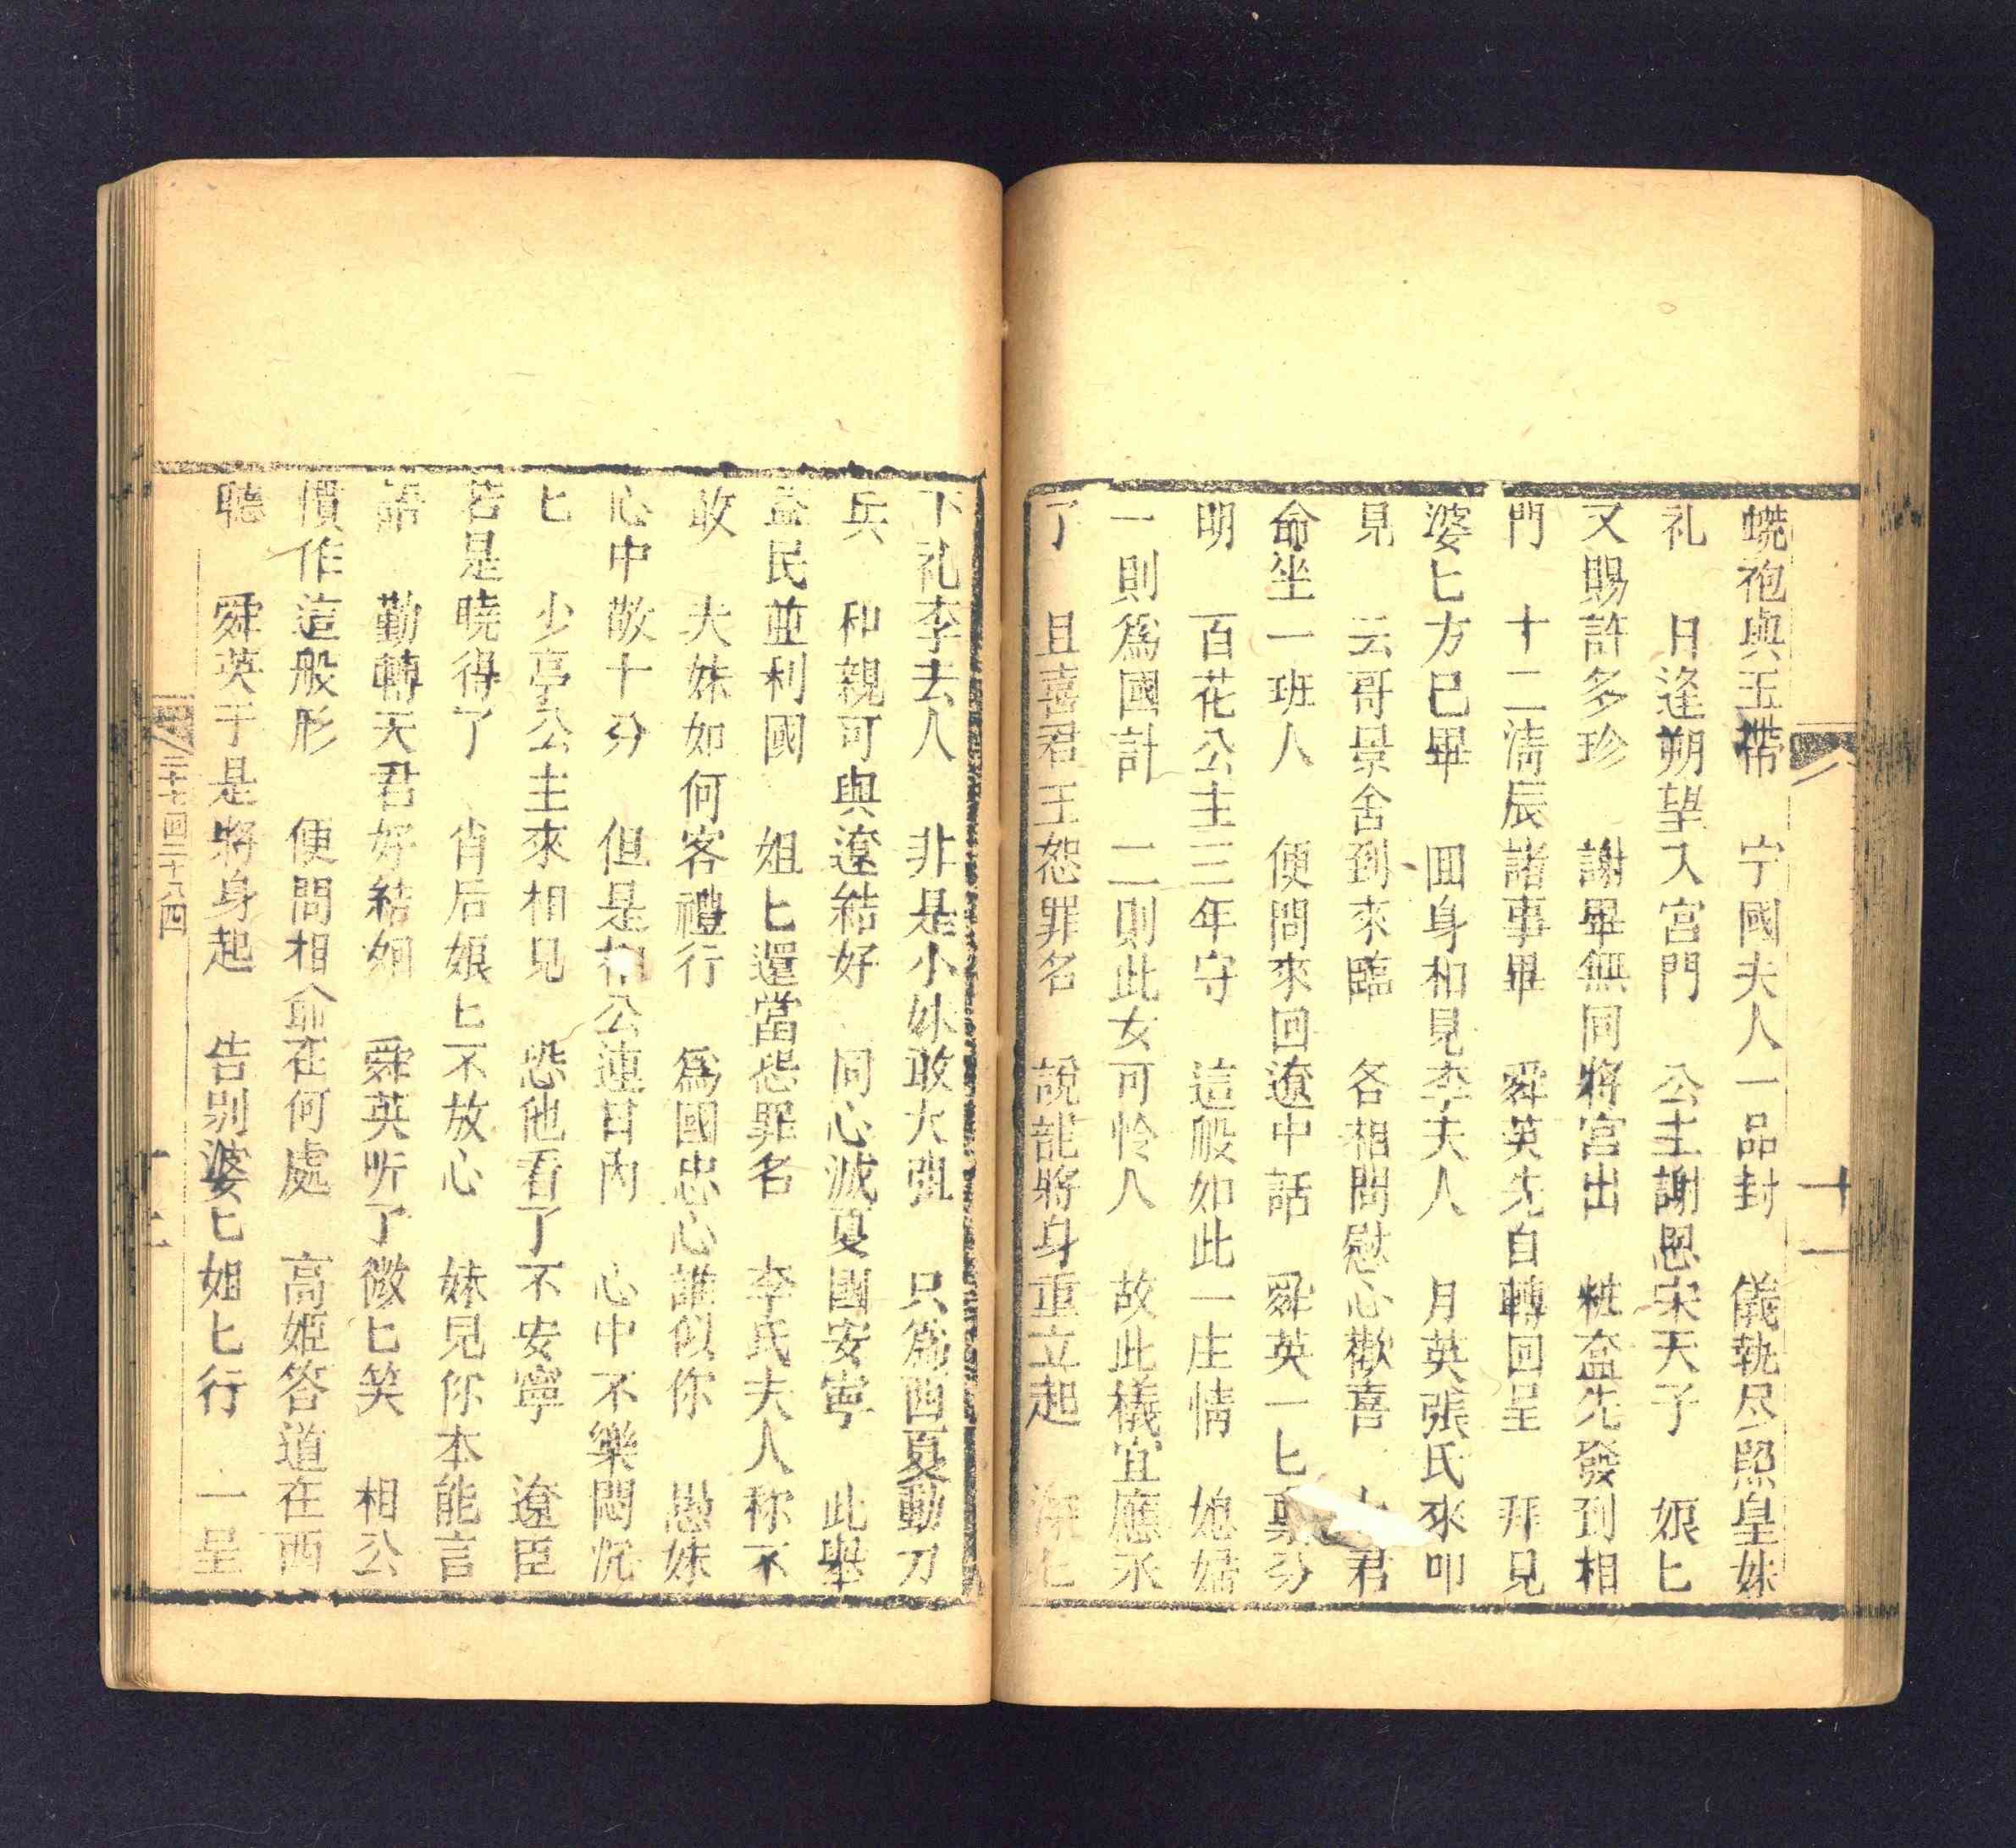 蟒袍與玉帶 宁國夫人一品封 儀執尽照皇妹
礼 日逢朔望入宮門 公主謝恩宋天子 娘匕
又賜許多珍 謝畢無同將宮出 粧盒先發到相
門 十二濤辰諸事畢 舜英先自轉回呈 拜見
婆匕方已畢 回身相見李夫人 月英張氏來叩
見 云哥景舍到來臨 各相問慰心歡喜 君
命坐一班人 便問來回遼中話 舜英一匕稟分
明 百花公主三年守 這般如此一庄情 媳婦
一則爲國計 二則此女可怜人 故此檥宜應承
了 且喜君王恕罪名 說罷將身重立起
下礼李夫人 非是小妹敢大强 只爲西夏動刀
兵 和親可與遼結好 同心滅夏國安寧 此舉
益民並利國 姐匕還當恕罪名 李氏夫人称不
敢 夫妹如何客禮行 爲國忠心誰似你 愚妹
心中敬十分 但是相公連日內 心中不樂悶沉
匕 少亭公主來相見 恐他看了不安寧 遼臣
若是曉得了 肖后娘匕不放心 妹見你本能言
語 勸轉夫君好結姻 舜英听了微匕笑 相公
慣作這般形 便問相爺在何處 高姬答道在西
聽 舜英于是將身起 告別婆匕姐匕行 一呈
三十七回三十八四
十一
十二